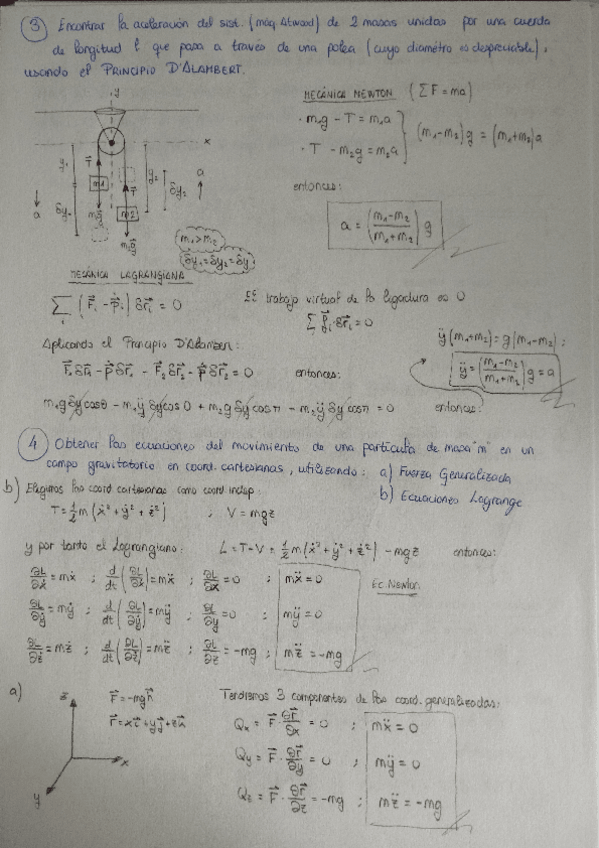 3 Encontrar la aceleración del sist. (máq Atwood) de 2 masas unidas por una cuerda
de longitud l que pasa a través de una polea (cuyo diámetro es despreciable),
usando el PRINCIPIO D'ALAMBERT.
MECÁNICA NEWTON (ΣF = ma)
y
x
· m₁g - T = m₁a
· T - m₂g = m₂a
(m₁-m₂)g = (m₁+m₂)a
y₁
T
m1
δy₁
a
m₁g
T
m2
m₂g
y₂
δy₂
a
entonces:
a = (m₁-m₂ / m₁+m₂) g
m₁>m₂
δy₁=δy₂=δy
MECÁNICA LAGRANGIANA
Σ (F⃗ᵢ - ṗ⃗ᵢ) δr⃗ᵢ = 0
El trabajo virtual de la ligadura es 0
Σ f⃗ᵢ·δr⃗ᵢ = 0
Aplicando el Principio D'Alambert:
F⃗₁δr⃗₁ - ṗ⃗δr⃗₁ - F⃗₂δr⃗₂ - ṗ⃗δr⃗₂ = 0
entonces:
ÿ(m₁+m₂) = g(m₁-m₂) ;
ÿ = (m₁-m₂ / m₁+m₂) g = a
m₁g δy cos0 - m₁ÿ δy cos0 + m₂g δy cosπ - m₂ÿ δy cosπ = 0 entonces:
4 Obtener las ecuaciones del movimiento de una partícula de masa "m" en un
campo gravitatorio en coord. cartesianas, utilizando: a) Fuerza Generalizada
b) Ecuaciones Lagrange
b) Elegimos las coord. cartesianas como coord. indep:
T = ½ m (ẋ² + ẏ² + ż²) ; V = mgz
y por tanto el Lagrangiano: L = T - V = ½ m (ẋ² + ẏ² + ż²) - mgz entonces:
∂L/∂ẋ = mẋ ; d/dt (∂L/∂ẋ) = mẍ ; ∂L/∂x = 0 ; mẍ = 0
Ec. Newton
∂L/∂ẏ = mẏ ; d/dt (∂L/∂ẏ) = mÿ ; ∂L/∂y = 0 ; mÿ = 0
∂L/∂ż = mż ; d/dt (∂L/∂ż) = mz̈ ; ∂L/∂z = -mg ; mz̈ = -mg
a)
z
x
y
F⃗ = -mgk⃗
r⃗ = xi⃗ + yj⃗ + zk⃗
Tendremos 3 componentes de las coord. generalizadas:
Qx = F⃗ · ∂r⃗/∂x = 0 ; mẍ = 0
Qy = F⃗ · ∂r⃗/∂y = 0 ; mÿ = 0
Qz = F⃗ · ∂r⃗/∂z = -mg ; mz̈ = -mg